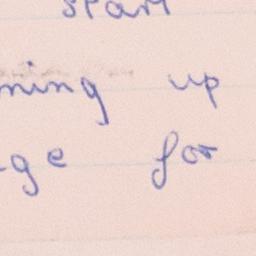 start
ning up
ge for